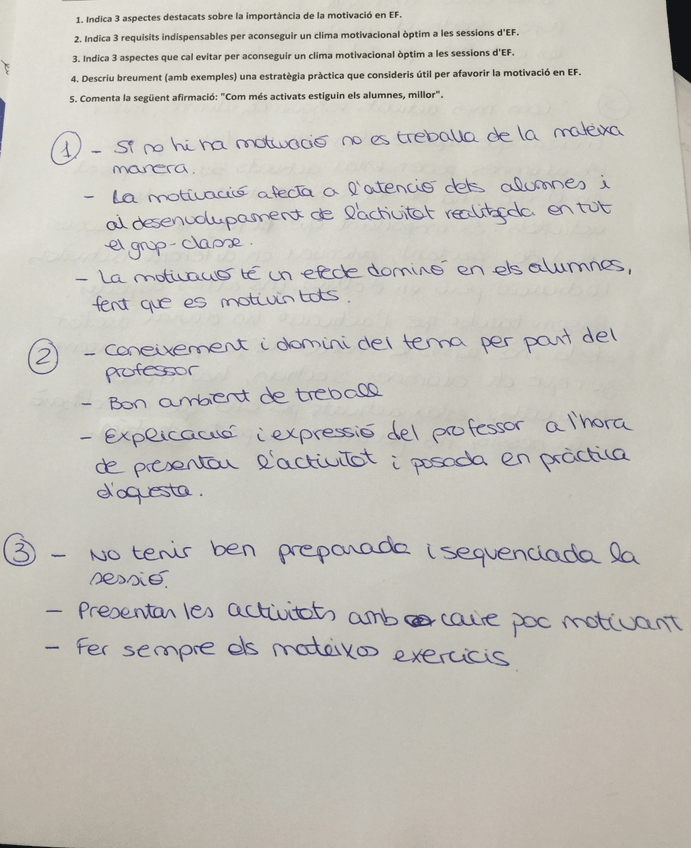 1. Indica 3 aspectes destacats sobre la importància de la motivació en EF.
2. Indica 3 requisits indispensables per aconseguir un clima motivacional òptim a les sessions d'EF.
3. Indica 3 aspectes que cal evitar per aconseguir un clima motivacional òptim a les sessions d'EF.
4. Descriu breument (amb exemples) una estratègia pràctica que consideris útil per afavorir la motivació en EF.
5. Comenta la següent afirmació: "Com més activats estiguin els alumnes, millor".
1 - Si no hi ha motivació no es treballa de la mateixa
manera.
- La motivació afecta a l'atenció dels alumnes i
al desenvolupament de l'activitat realitzada en tot
el grup-classe.
- La motivació té un efecte dominó en els alumnes,
fent que es motivin tots.
2 - Coneixement i domini del tema per part del
professor
- Bon ambient de treball
- Explicació i expressió del professor a l'hora
de presentar l'activitat i posada en pràctica
d'aquesta.
3 - No tenir ben preparada i sequenciada la
sessió.
- Presentar les activitats amb caire poc motivant
- Fer sempre els mateixos exercicis